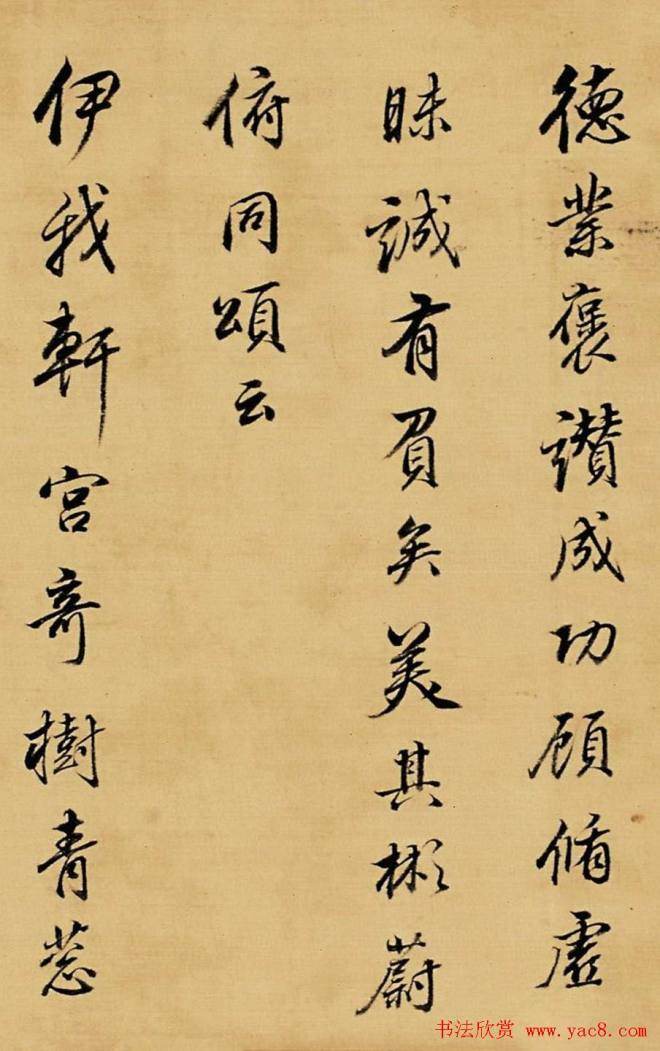 德業褒讚成功顧脩虛
昧誠有負矣美其彬蔚
俯同頌云
伊我軒宮奇樹青葱
书法欣赏 www.yac8.com